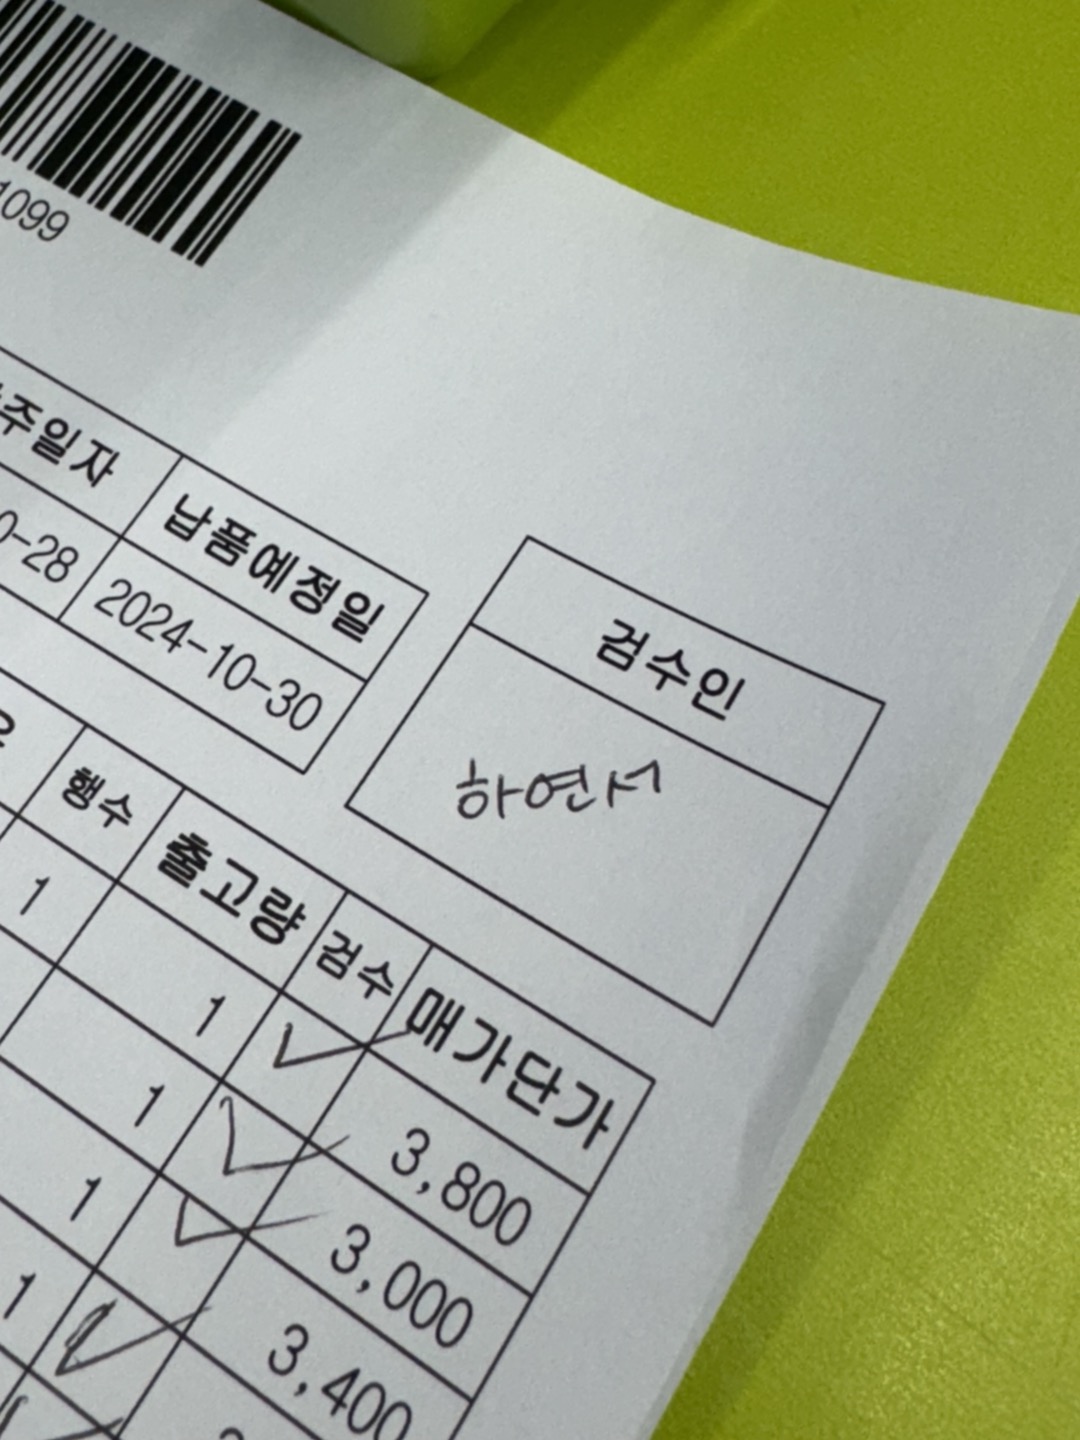 1099
주일자 납품예정일
0-28 2024-10-30
검수인
하연서
행수 출고량 검수 매가단가
1 1 3,800
1 3,000
1 3,400
1